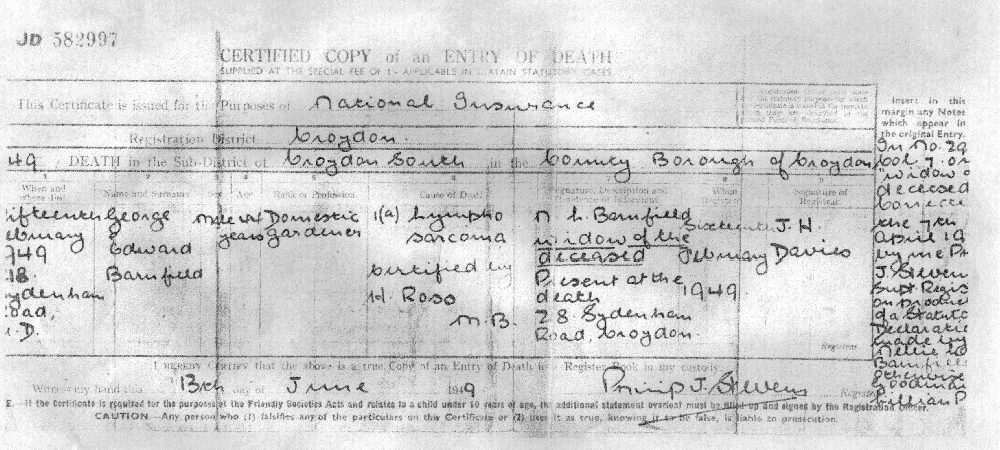 JD 582997
CERTIFIED COPY of an ENTRY OF DEATH
SUPPLIED AT THE SPECIAL FEE OF 1/- APPLICABLE IN CERTAIN STATUTORY CASES
This Certificate is issued for the Purposes of National Insurance
Registration District Croydon
49 DEATH in the Sub-District of Croydon South in the County Borough of Croydon
When and where died
Name and Surname
Sex
Age
Rank or Profession
Cause of Death
Signature, Description and Residence of Informant
When Registered
Signature of Registrar
ifteenth
ebruary
949
18.
ydenham
oad,
.D.
George
Edward
Barnfield
male
years
Domestic
gardener
1(a) Lympho
sarcoma
Certified by
H. Ross
M.B.
N. L. Barnfield
widow of the
deceased
Present at the
death
28. Sydenham
Road, Croydon.
Sixteenth
February
1949
J. H.
Davies
Registrar
Insert in this
margin any Notes
which appear in
the original Entry.
In No. 29
Col 7. or
"widow o
deceased
correc
the 7th
April 19
by me Ph
J. Steven
Supt Regis
on produc
of a Statuto
Declaratio
made by
Nellie
Barnfiel
otherwise
Goodman
Lillian P
I HEREBY CERTIFY that the above is a true Copy of an Entry of Death in a Register Book in my custody.
Witness my hand this 13th day of June 1949 Philip J. Stevens Registrar
E.—If the Certificate is required for the purposes of the Friendly Societies Acts and relates to a child under 10 years of age, the additional statement overleaf must be filled up and signed by the Registration Officer.
CAUTION—Any person who (1) falsifies any of the particulars on this Certificate or (2) uses it as true, knowing it to be false, is liable to prosecution.